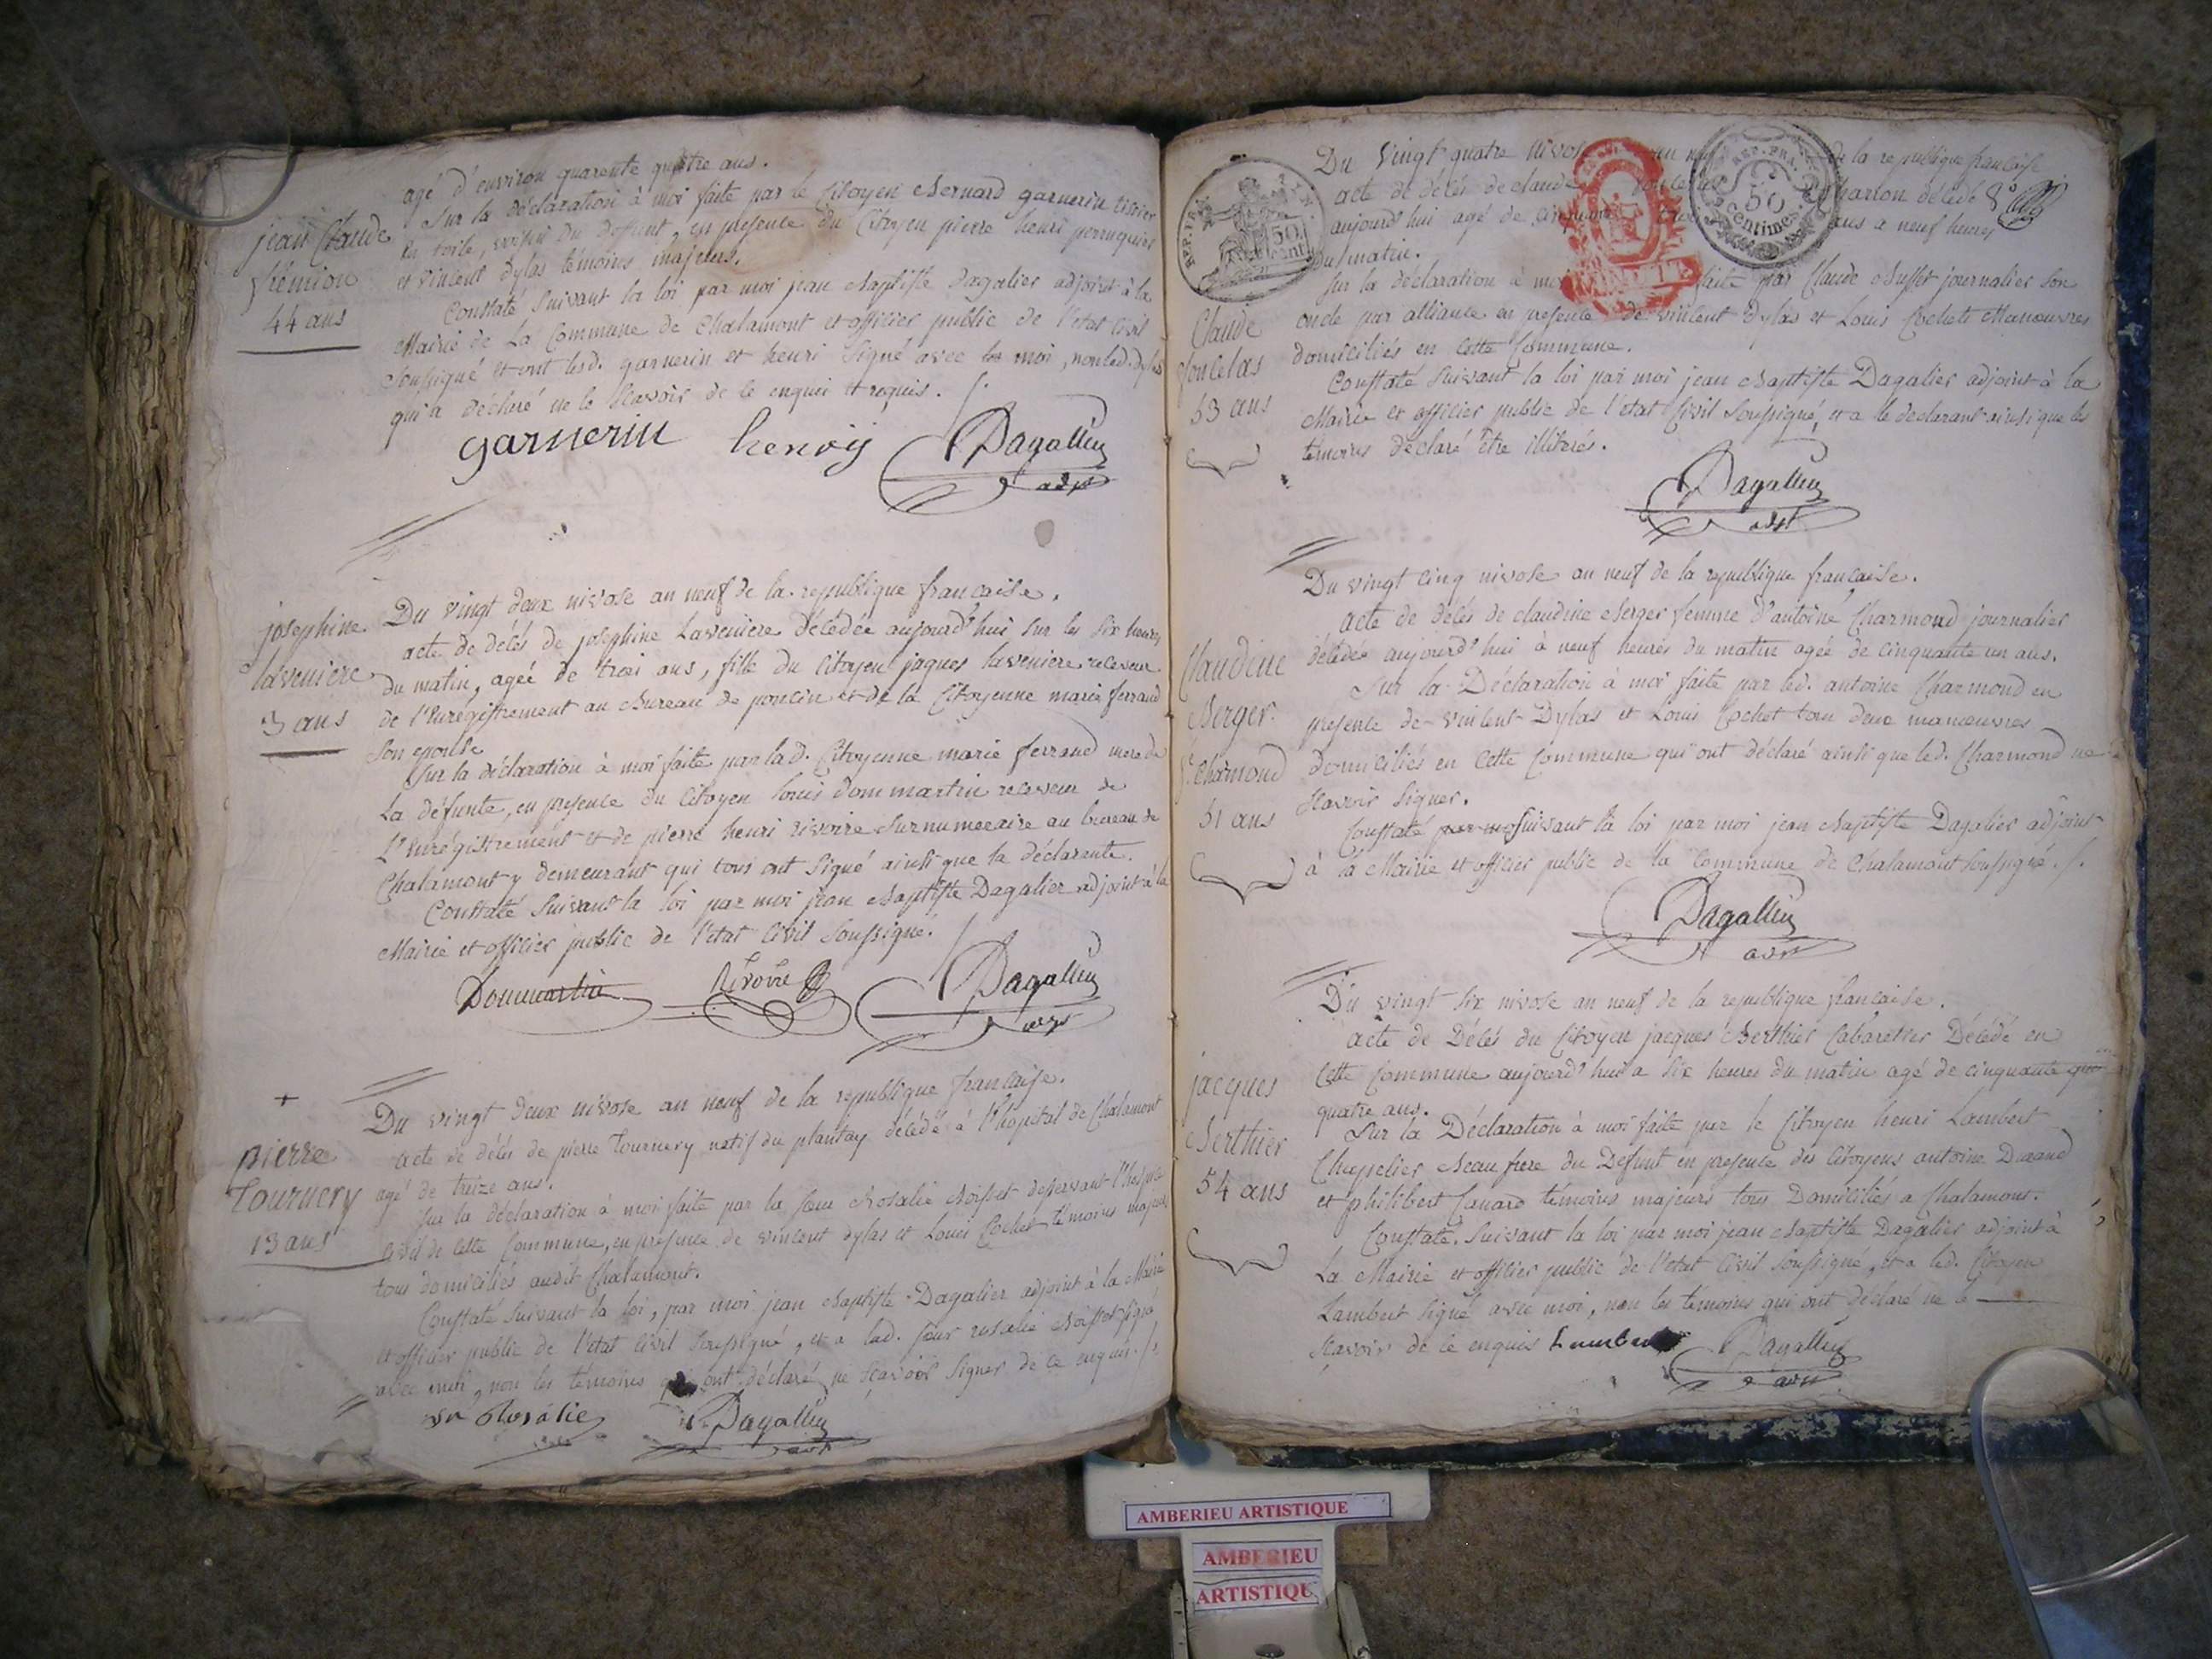 agé d'environ quarente quatre ans.
Sur la déclaration à moi faite par le Citoyen Bernard garnerin tissier
en toile, voisin du Defunt, en presence du Citoyen pierre henri perruquier
et vincent Dylas témoins majeurs.
Constaté suivant la loi par moi jean Baptiste Dagalier adjoint à la
Mairie de La Commune de Chalamont et officier public de l'etat Civil
soussigné et ont lesd. garnerin et henri signé avec moi, non led. Dylas
qui a déclaré ne le scavoir de le enquis et requis ./.
jean Claude
44 ans
garnerin henry Dagallier
adjt
josephine
laveniere
3 ans
Du vingt deux nivose an neuf de la republique francaise.
acte de décès de josephine Laveniere décédée aujourd'hui sur les six heures
du matin, agée de trois ans, fille du Citoyen jaques laveniere receveur
de l'Enregistrement au Bureau de poncin et de la Citoyenne marie ferrand
son epouse
Sur la déclaration à moi faite par lad. Citoyenne marie ferrand mere de
La défunte, en presence du Citoyen louis dommartin receveur de
L'Enregistrement et de pierre henri rivoire surnumeraire au bureau de
Chalamont y demeurant qui tous ont signé ainsi que la déclarante.
Constaté suivant la loi par moi jean Baptiste Dagalier adjoint à la
Mairie et officier public de l'etat Civil soussigné. /
Dommartin Rivoire Dagallier
adjt
+
pierre
Tournery
13 ans
Du vingt deux nivose an neuf de la republique francaise.
acte de décés de pierre Tournery natif du plantay décédé à l'hopital de Chalamont
agé de treize ans.
Sur la déclaration à moi faite par la soeur Rosalie desservant l'hospice
Civil de cette Commune, en presence de vincent dylas et Louis Cochet témoins majeurs
tous domiciliés audit Chalamont.
Constaté suivant la loi, par moi jean Baptiste Dagalier adjoint à la Mairie
et officier public de l'etat Civil soussigné, et a lad. soeur rosalie signé
avec moi, non les témoins qui ont déclaré ne scavoir signer de ce enquis ./.
sr Rosalie Dagallier
adjt
REP. FRA.
50
cent.
REP. FRA.
50
Centimes.
Du vingt quatre nivose an neuf de la republique francaise
acte de décés de claude Charton décédé
aujourd'hui agé de cinquante trois ans a neuf heures
du matin.
Sur la déclaration à moi faite par Claude Buffet journalier son
oncle par alliance en presence de vincent Dylas et Louis Cochet Manoeuvres
domiciliés en cette Commune.
Constaté suivant la loi par moi jean Baptiste Dagalier adjoint à la
Mairie et officier public de l'etat Civil soussigné, et a le declarant ainsi que les
témoins déclaré être illiterés.
Claude
53 ans
Dagallier
adjt
Du vingt cinq nivose an neuf de la republique francaise.
acte de décés de claudine Berger femme d'antoine Charmond journalier
décédée aujourd'hui à neuf heures du matin agée de cinquante un ans.
Sur la Déclaration à moi faite par led. antoine Charmond en
presence de vincent Dylas et Louis Cochet tous deux manoeuvres
domiciliés en cette Commune qui ont déclaré ainsi que led. Charmond ne
scavoir signer.
Constaté par moi suivant la loi par moi jean Baptiste Dagalier adjoint
à la Mairie et officier public de la Commune de Chalamont soussigné ./.
Claudine
Berger
f. Charmond
51 ans
Dagallier
adjt
Du vingt six nivose an neuf de la republique francaise.
acte de Décés du Citoyen jacques Berthier Cabaretier Décédé en
cette Commune aujourd'hui a six heures du matin agé de cinquante
quatre ans.
Sur la Déclaration à moi faite par le Citoyen henri Lambert
Chapelier Beau frere du Defunt en presence des Citoyens antoine Durand
et philibert Canard témoins majeurs tous Domiciliés a Chalamont.
Constaté suivant la loi par moi jean Baptiste Dagalier adjoint à
La Mairie et officier public de l'etat Civil soussigné, et a led. Citoyen
Lambert signé avec moi, non les temoins qui ont déclaré ne le
scavoir de ce enquis Lambert Dagallier
adjt
jacques
Berthier
54 ans
AMBERIEU ARTISTIQUE
AMBERIEU
ARTISTIQU